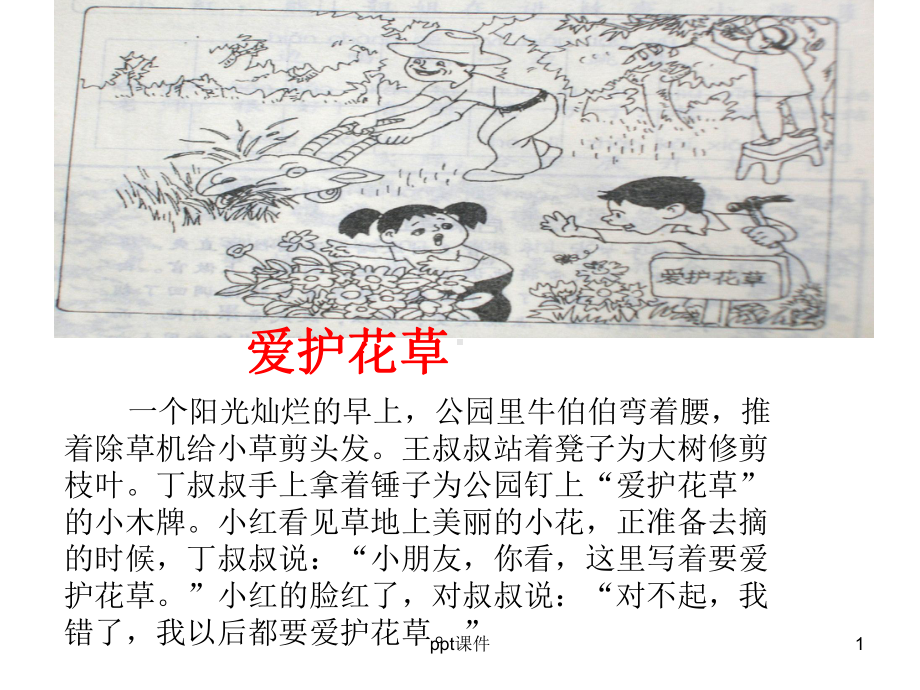 爱护花草
爱护花草
一个阳光灿烂的早上，公园里牛伯伯弯着腰，推
着除草机给小草剪头发。王叔叔站着凳子为大树修剪
枝叶。丁叔叔手上拿着锤子为公园钉上“爱护花草”
的小木牌。小红看见草地上美丽的小花，正准备去摘
的时候，丁叔叔说：“小朋友，你看，这里写着要爱
护花草。”小红的脸红了，对叔叔说：“对不起，我
错了，我以后都要爱护花草。”
ppt课件
1